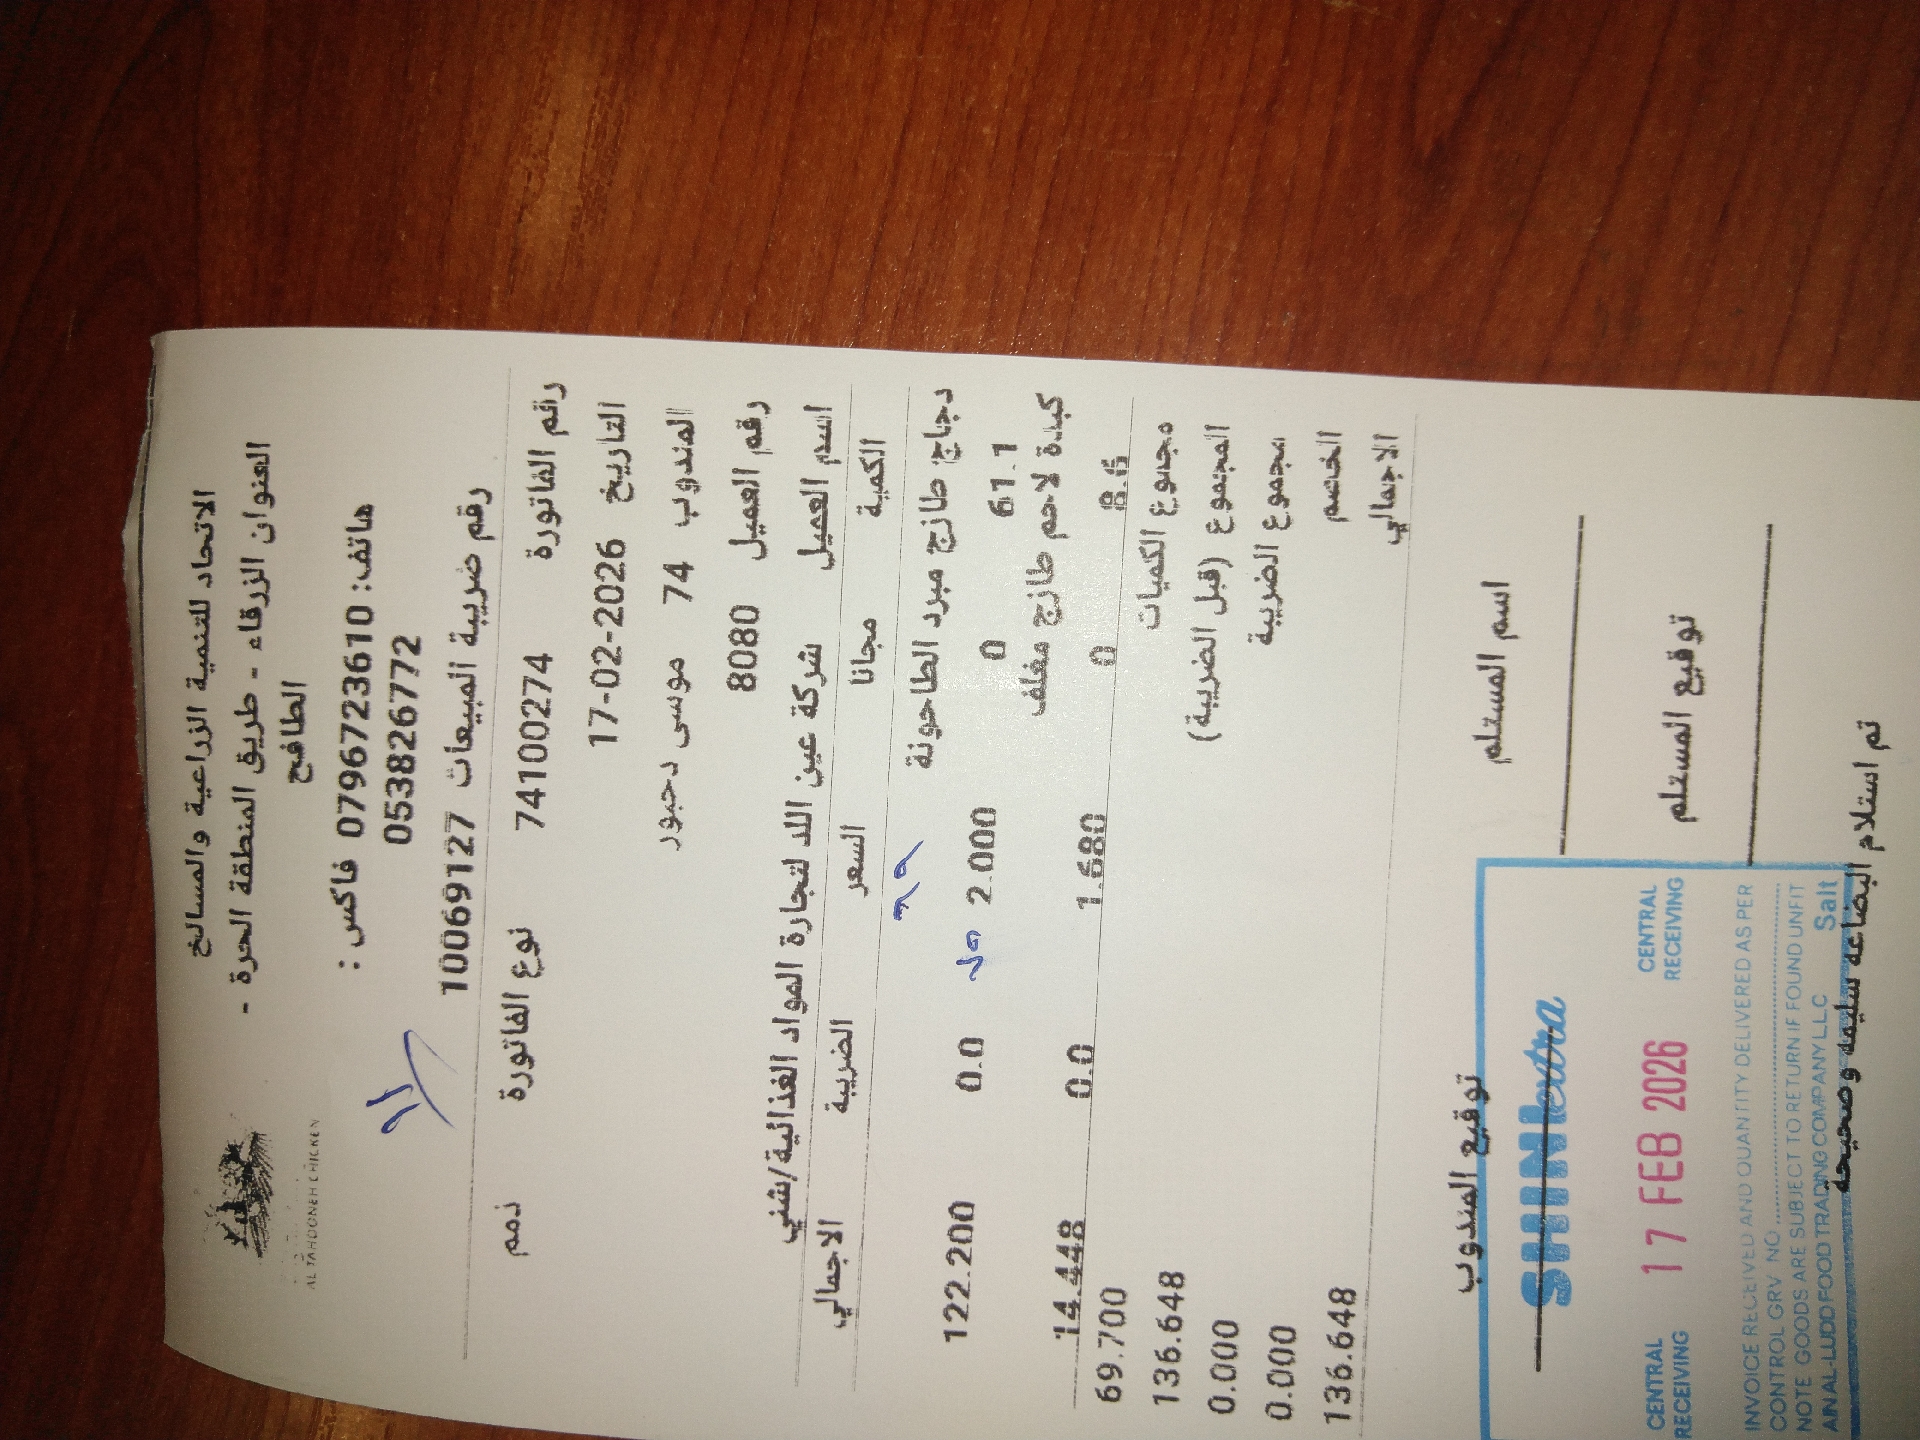 AL TAHOONEH CHICKEN
الاتحاد للتنمية الزراعية والمسالخ
العنوان الزرقاء - طريق المنطقة الحرة -
الطافح
هاتف: 0796723610 فاكس:
053826772
رقم ضريبة المبيعات 10069127
رقم الفاتورة 74100274 نوع الفاتورة ذمم
التاريخ 17-02-2026
المندوب 74 موسى دحبور
رقم العميل 8080
اسم العميل شركة عين اللد لتجارة المواد الغذائية/شني
الكمية مجانا السعر الضريبة الاجمالي
دجاج طازج مبرد الطاحونة
61.1 0 2.000 0.0 122.200
كبدة لاحم طازج مغلف
8.6 0 1.680 0.0 14.448
مجموع الكميات 69.700
المجموع (قبل الضريبة) 136.648
مجموع الضريبة 0.000
الخصم 0.000
الاجمالي 136.648
اسم المستلم توقيع المندوب
توقيع المستلم
SHINI extra
CENTRAL RECEIVING 17 FEB 2026 CENTRAL RECEIVING
INVOICE RECEIVED AND QUANTITY DELIVERED AS PER
CONTROL GRV NO
NOTE GOODS ARE SUBJECT TO RETURN IF FOUND UNFIT
AIN AL-LUDD FOOD TRADING COMPANY L.L.C Salt
تم استلام البضاعه سليمه وصحيحه